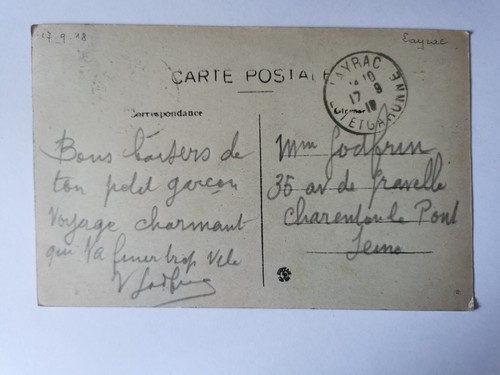 17.9.18
Layrac
CARTE POSTALE
LAYRAC
17 9
18
LOT ET GARONNE
Correspondance
Bons baisers de
ton petit garçon
Voyage charmant
qui va finir trop vite
Mme Godfrin
35 av de Gravelle
Charenton le Pont
Seine